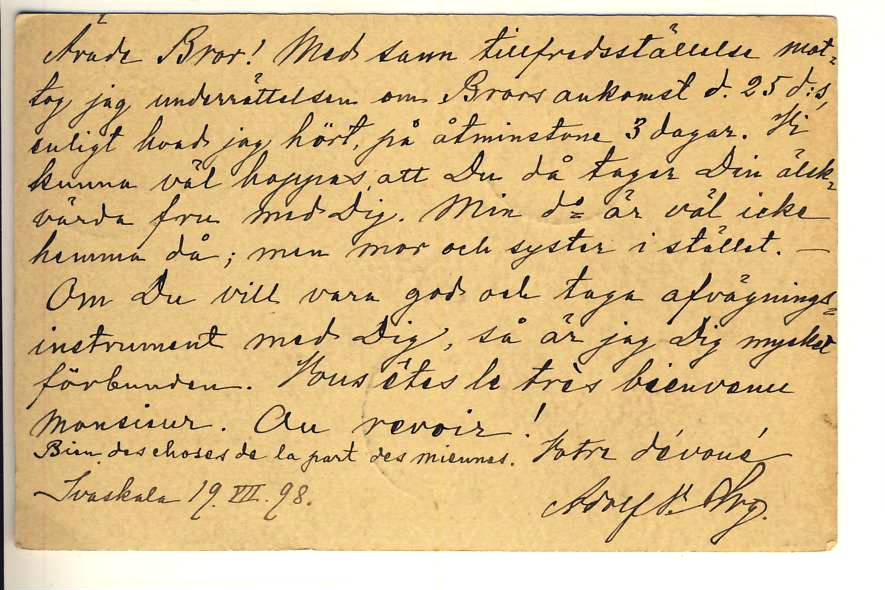 Ärade Bror! Med sann tillfredsställelse mot-
tog jag underrättelsen om Brors ankomst d. 25 d:s,
enligt hvad jag hört, på åtminstone 3 dagar. Vi
kunna väl hoppas, att Du då tager Din älsk-
värda fru med Dig. Min do är väl icke
hemma då; men mor och syster i stället. —
Om Du vill vara god och taga afvägnings-
instrument med Dig, så är jag Dig mycket
förbunden. Vous êtes le très bienvenu
Monsieur. Au revoir!
Bien des choses de la part des miennes. Votre dévoué
Ivaskala 19.VII.98.
Adolf